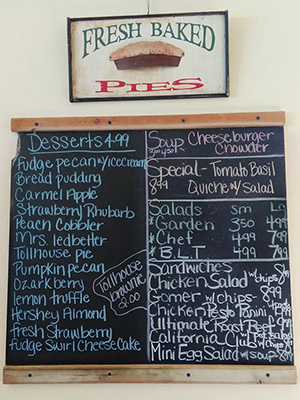 FRESH BAKED
PIES
Desserts 4.99
Fudge pecan w/ icecream
Bread pudding
Carmel Apple
Strawberry Rhubarb
Peach Cobbler
Mrs. ledbetter
Tollhouse pie
Pumpkin pecan
Ozarkberry
lemon truffle
Hershey Almond
Fresh Strawberry
Fudge Swirl CheeseCake
Tollhouse
brownie
3.00
Soup Cheeseburger
Chowder
Special - Tomato Basil
8.99 Quiche w/ Salad
Salads Sm LG
* Garden 3.50 499
* Chef 499 799
* B.L.T 499 799
Sandwiches
Chicken Salad w/chips 8.99
Gomer w/ chips 899
Chicken Pesto Panini
Ultimate Roast Beef
California Club
Mini Egg Salad w/ soup